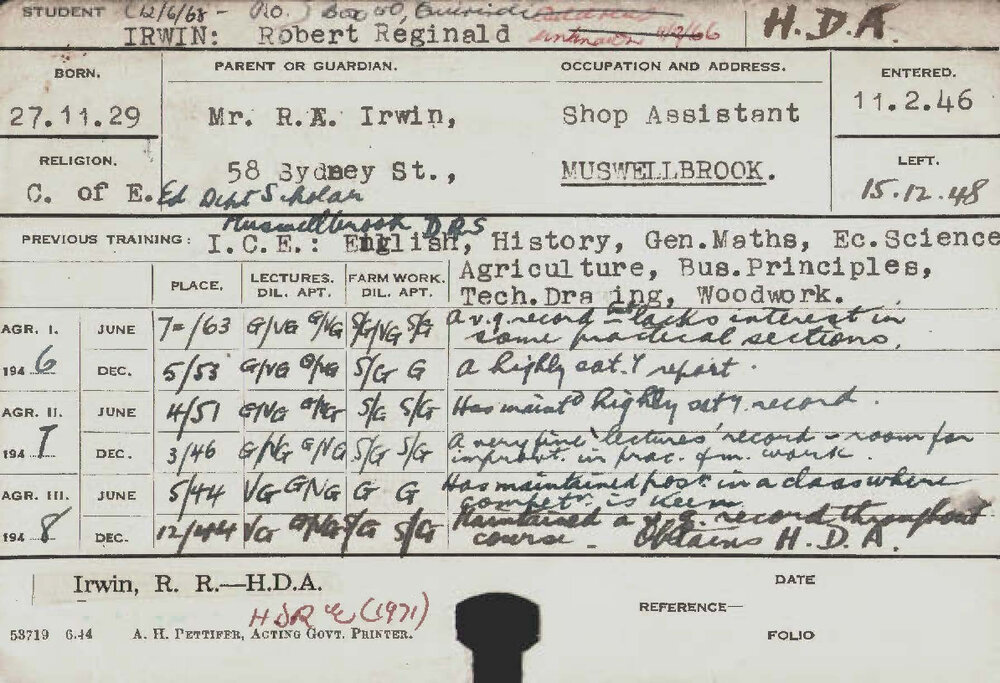 STUDENT (12/6/68 - P.O. Box 50,
IRWIN: Robert Reginald unknown 4/2/66 H.D.A.
BORN. PARENT OR GUARDIAN. OCCUPATION AND ADDRESS. ENTERED.
27.11.29 Mr. R.E. Irwin, Shop Assistant 11.2.46
RELIGION. 58 Sydney St., MUSWELLBROOK. LEFT.
C. of E. Ed Dept Scholar 15.12.48
Muswellbrook D.R.S
PREVIOUS TRAINING: I.C.E.: English, History, Gen.Maths, Ec.Science
Agriculture, Bus.Principles,
Tech.Dra ing, Woodwork.
PLACE. LECTURES. DIL. APT. FARM WORK. DIL. APT.
AGR. I. JUNE 7=/63 G/VG G/VG S/G/VG S/G A v.g record - but lacks interest in
some practical sections.
1946 DEC. 5/53 G/VG G/VG S/G G A highly sat.y report.
AGR. II. JUNE 4/51 G/VG G/VG S/G S/G Has maintd highly saty. record.
1947 DEC. 3/46 G/VG G/VG S/G S/G A very fine 'lectures' record - room for
improvt. in prac. fm. work.
AGR. III. JUNE 5/44 VG G/VG G G Has maintained post. in a class where
competn. is keen
1948 DEC. 12/44 VG G/VG S/G S/G Maintained a v.g. record throughout
course - Obtains H.D.A.
Irwin, R. R.—H.D.A.
DATE
REFERENCE—
HDR (1971)
53719 6.44 A. H. PETTIFER, ACTING GOVT. PRINTER.
FOLIO